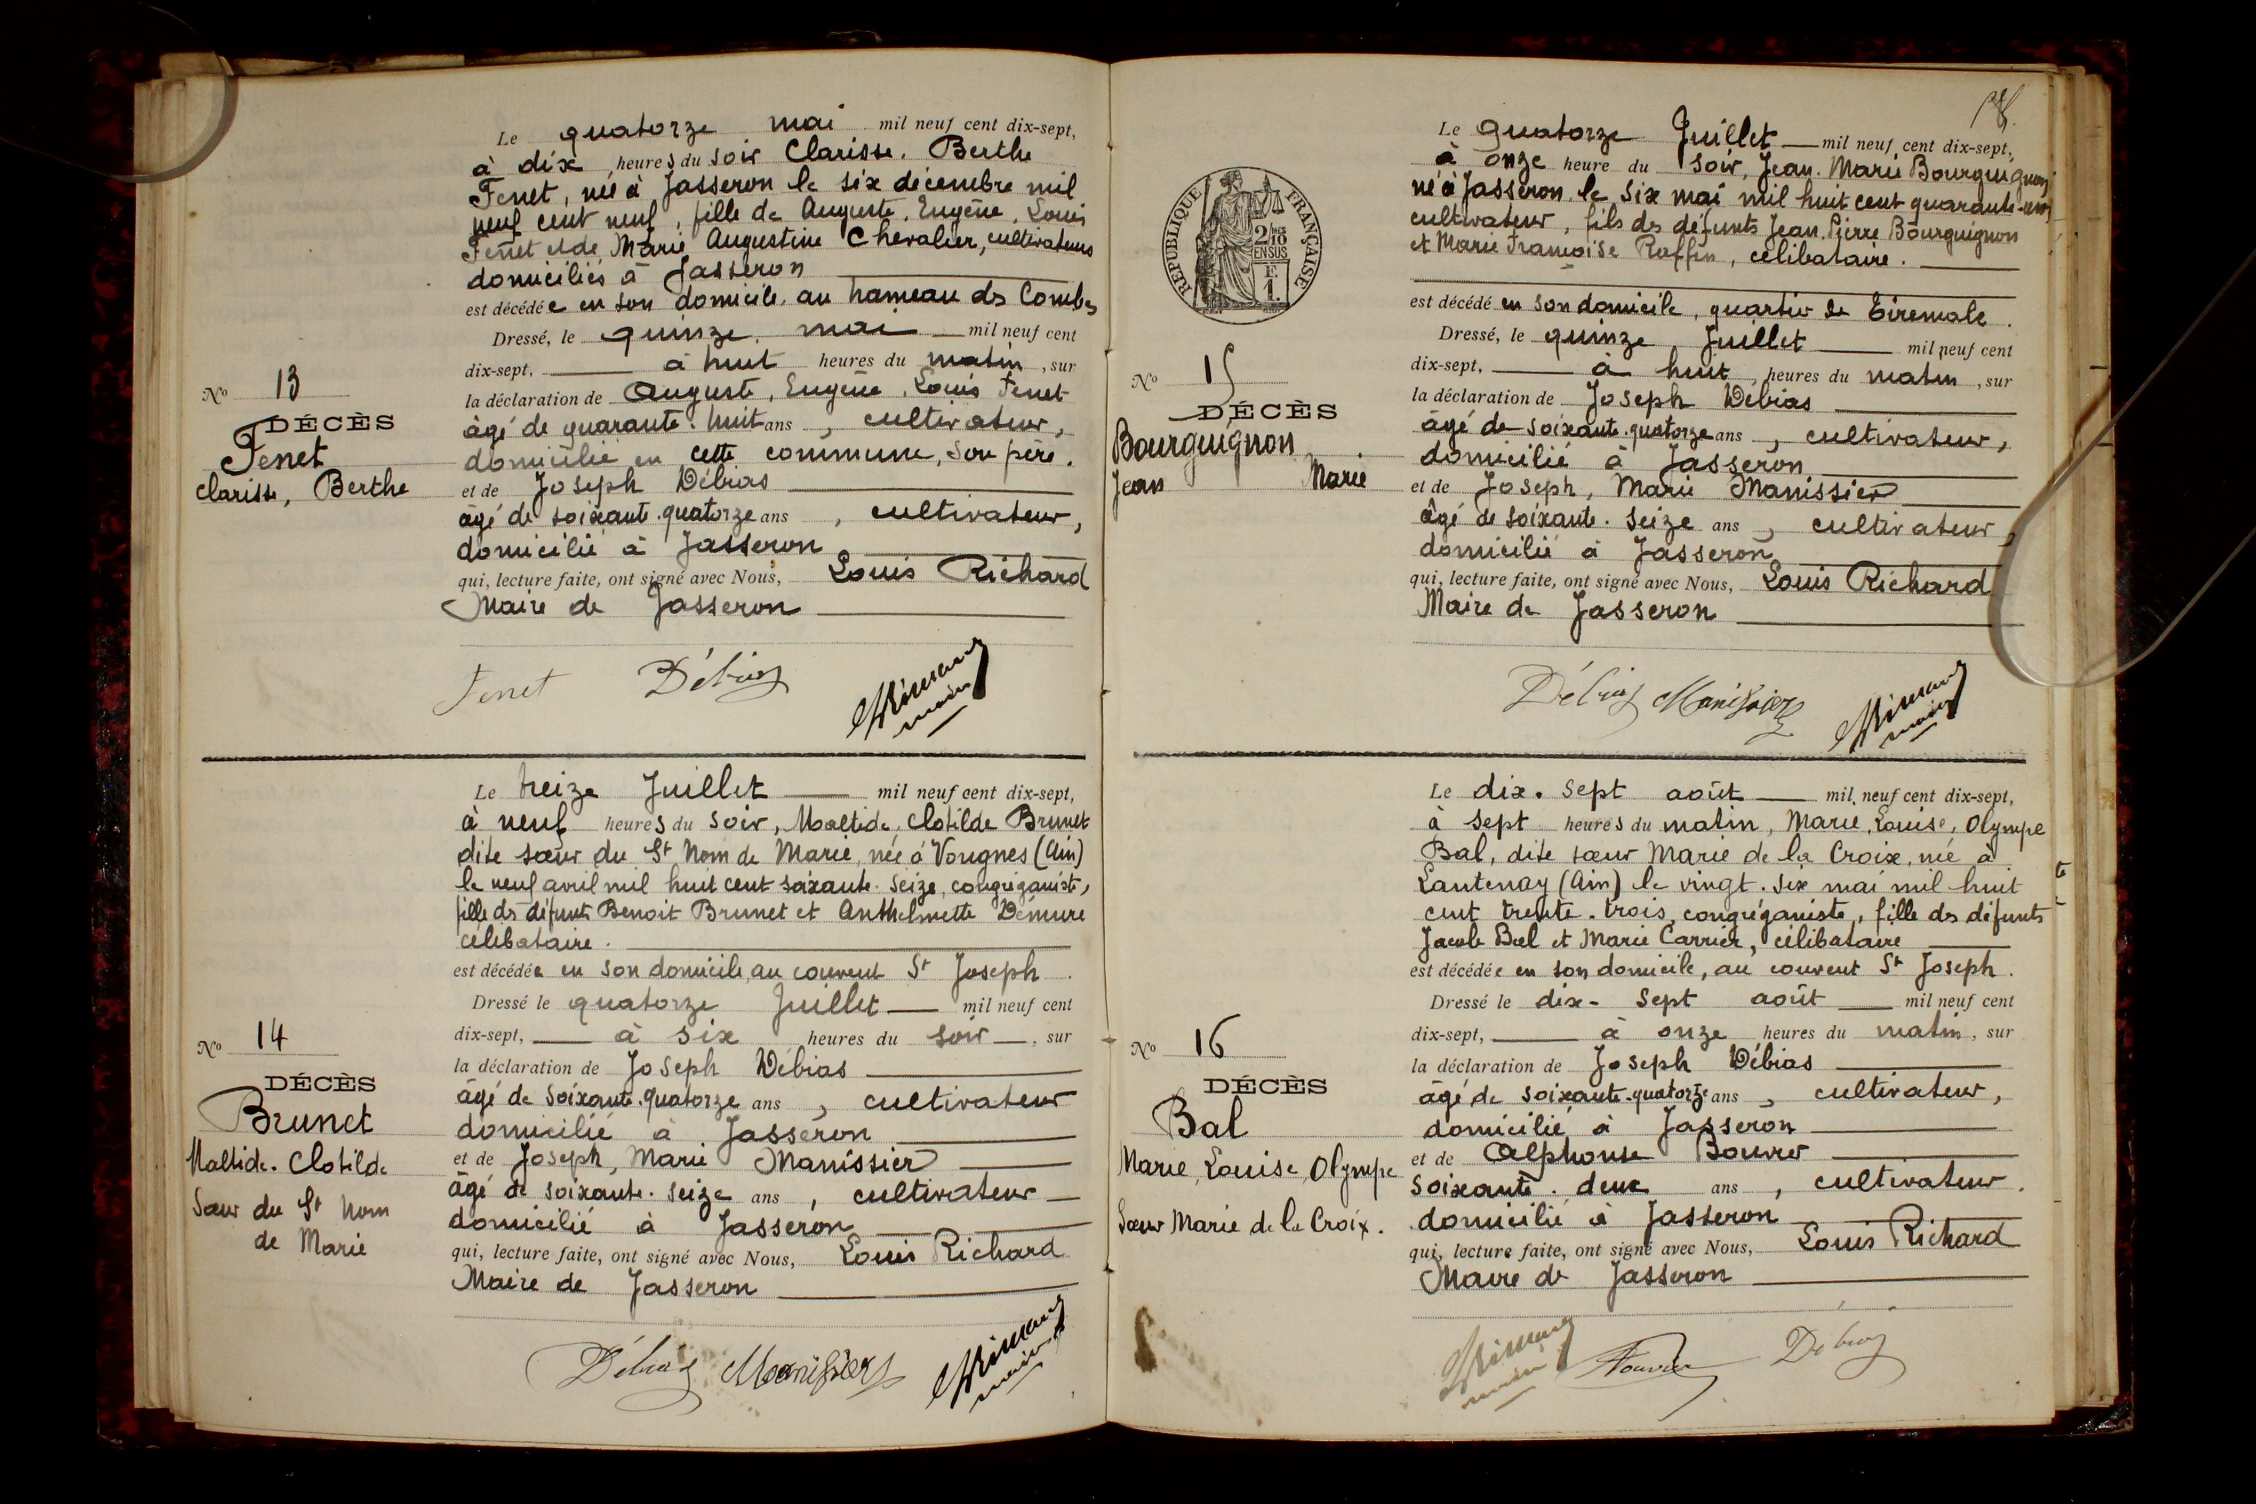 Le quatorze mai mil neuf cent dix-sept,
à dix heures du soir Clarisse, Berthe
Fenet, née à Jasseron le six décembre mil
neuf cent neuf, fille de Auguste, Eugène, Louis
Fenet et de Marie Augustine Chevalier, cultivateurs
domiciliés à Jasseron
est décédée en son domicile, au hameau des Combes
Dressé, le quinze mai mil neuf cent
dix-sept, à huit heures du matin, sur
la déclaration de Auguste, Eugène, Louis Fenet
âgé de quarante-huit ans, cultivateur,
domicilié en cette commune, son père.
et de Joseph Débias
âgé de soixante-quatorze ans, cultivateur,
domicilié à Jasseron
qui, lecture faite, ont signé avec Nous, Louis Richard
Maire de Jasseron
No 13
DÉCÈS
Fenet
Clarisse, Berthe
Fenet Débias
maire
Le treize Juillet mil neuf cent dix-sept,
à neuf heures du soir, Maltide, Clotilde Brunet
dite sœur du St Nom de Marie, née à Vongnes (Ain)
le neuf avril mil huit cent soixante-seize, congréganiste,
fille des défunts Benoit Brunet et Anthelmette Démure
célibataire.
est décédée en son domicile, au couvent St Joseph.
Dressé le quatorze Juillet mil neuf cent
dix-sept, à six heures du soir, sur
la déclaration de Joseph Débias
âgé de soixante-quatorze ans, cultivateur
domicilié à Jasseron
et de Joseph, Marie Manissier
âgé de soixante-seize ans, cultivateur
domicilié à Jasseron
qui, lecture faite, ont signé avec Nous, Louis Richard
Maire de Jasseron
No 14
DÉCÈS
Brunet
Maltide. Clotilde
Sœur du St Nom
de Marie
Débias Manissier
maire
RÉPUBLIQUE FRANÇAISE
2/10
EN SUS
F.
1.
Le quatorze Juillet mil neuf cent dix-sept,
à onze heure du soir, Jean-Marie Bourguignon
né à Jasseron le six mai mil huit cent quarante-
cultivateur, fils des défunts Jean-Pierre Bourguignon
et Marie Françoise Ruffin, célibataire.
est décédé en son domicile, quartier de Tiremale.
Dressé, le quinze Juillet mil neuf cent
dix-sept, à huit heures du matin, sur
la déclaration de Joseph Débias
âgé de soixante-quatorze ans, cultivateur,
domicilié à Jasseron
et de Joseph, Marie Manissier
âgé de soixante-seize ans, cultivateur,
domicilié à Jasseron
qui, lecture faite, ont signé avec Nous, Louis Richard
Maire de Jasseron
No 15
DÉCÈS
Bourguignon
Jean Marie
Débias Manissier
maire
Le dix-sept août mil neuf cent dix-sept,
à sept heures du matin, Marie, Louise, Olympe
Bal, dite sœur Marie de la Croix, née à
Lantenay (Ain) le vingt-six mai mil huit
cent trente-trois, congréganiste, fille des défunts
Jacob Bal et Marie Carrier, célibataire
est décédée en son domicile, au couvent St Joseph.
Dressé le dix-sept août mil neuf cent
dix-sept, à onze heures du matin, sur
la déclaration de Joseph Débias
âgé de soixante-quatorze ans, cultivateur,
domicilié à Jasseron
et de Alphonse Bouvier
soixante-deux ans, cultivateur.
domicilié à Jasseron
qui, lecture faite, ont signé avec Nous, Louis Richard
Maire de Jasseron
No 16
DÉCÈS
Bal
Marie, Louise, Olympe
Sœur Marie de la Croix.
maire Bouvier Débias